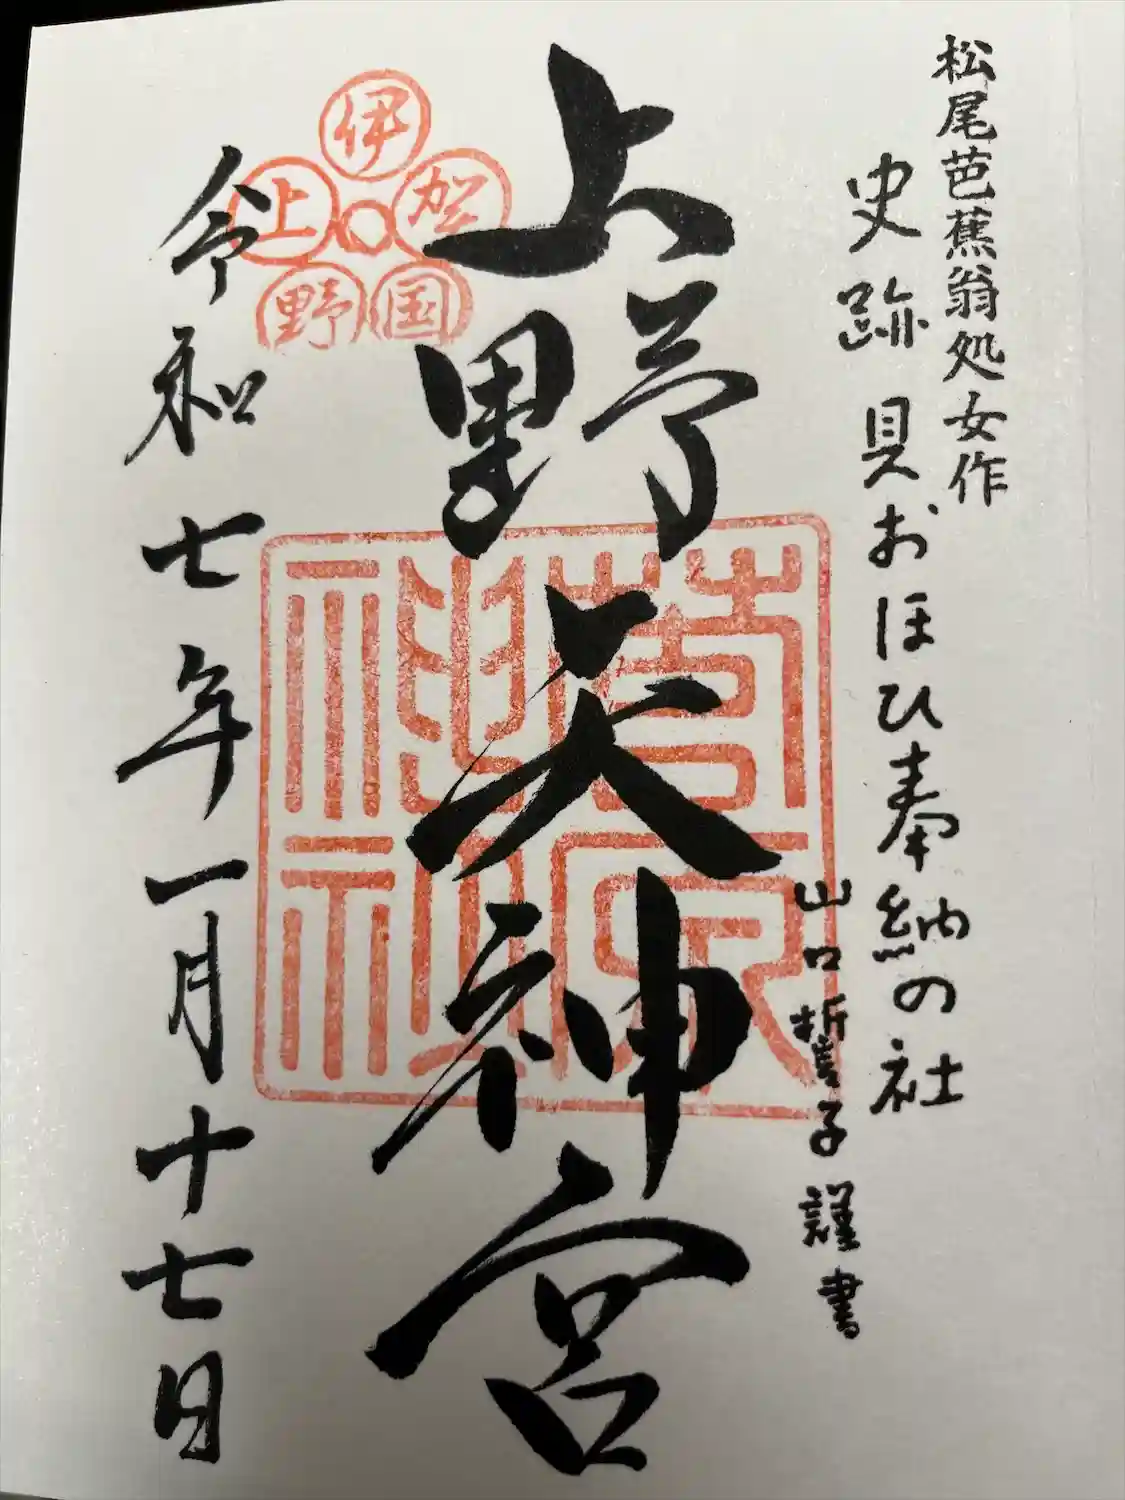 松尾芭蕉翁処女作
史跡 貝おほひ奉納の社
山口哲子 謹書
上野天神宮
伊賀国野上
菅原神社
令和七年一月十七日